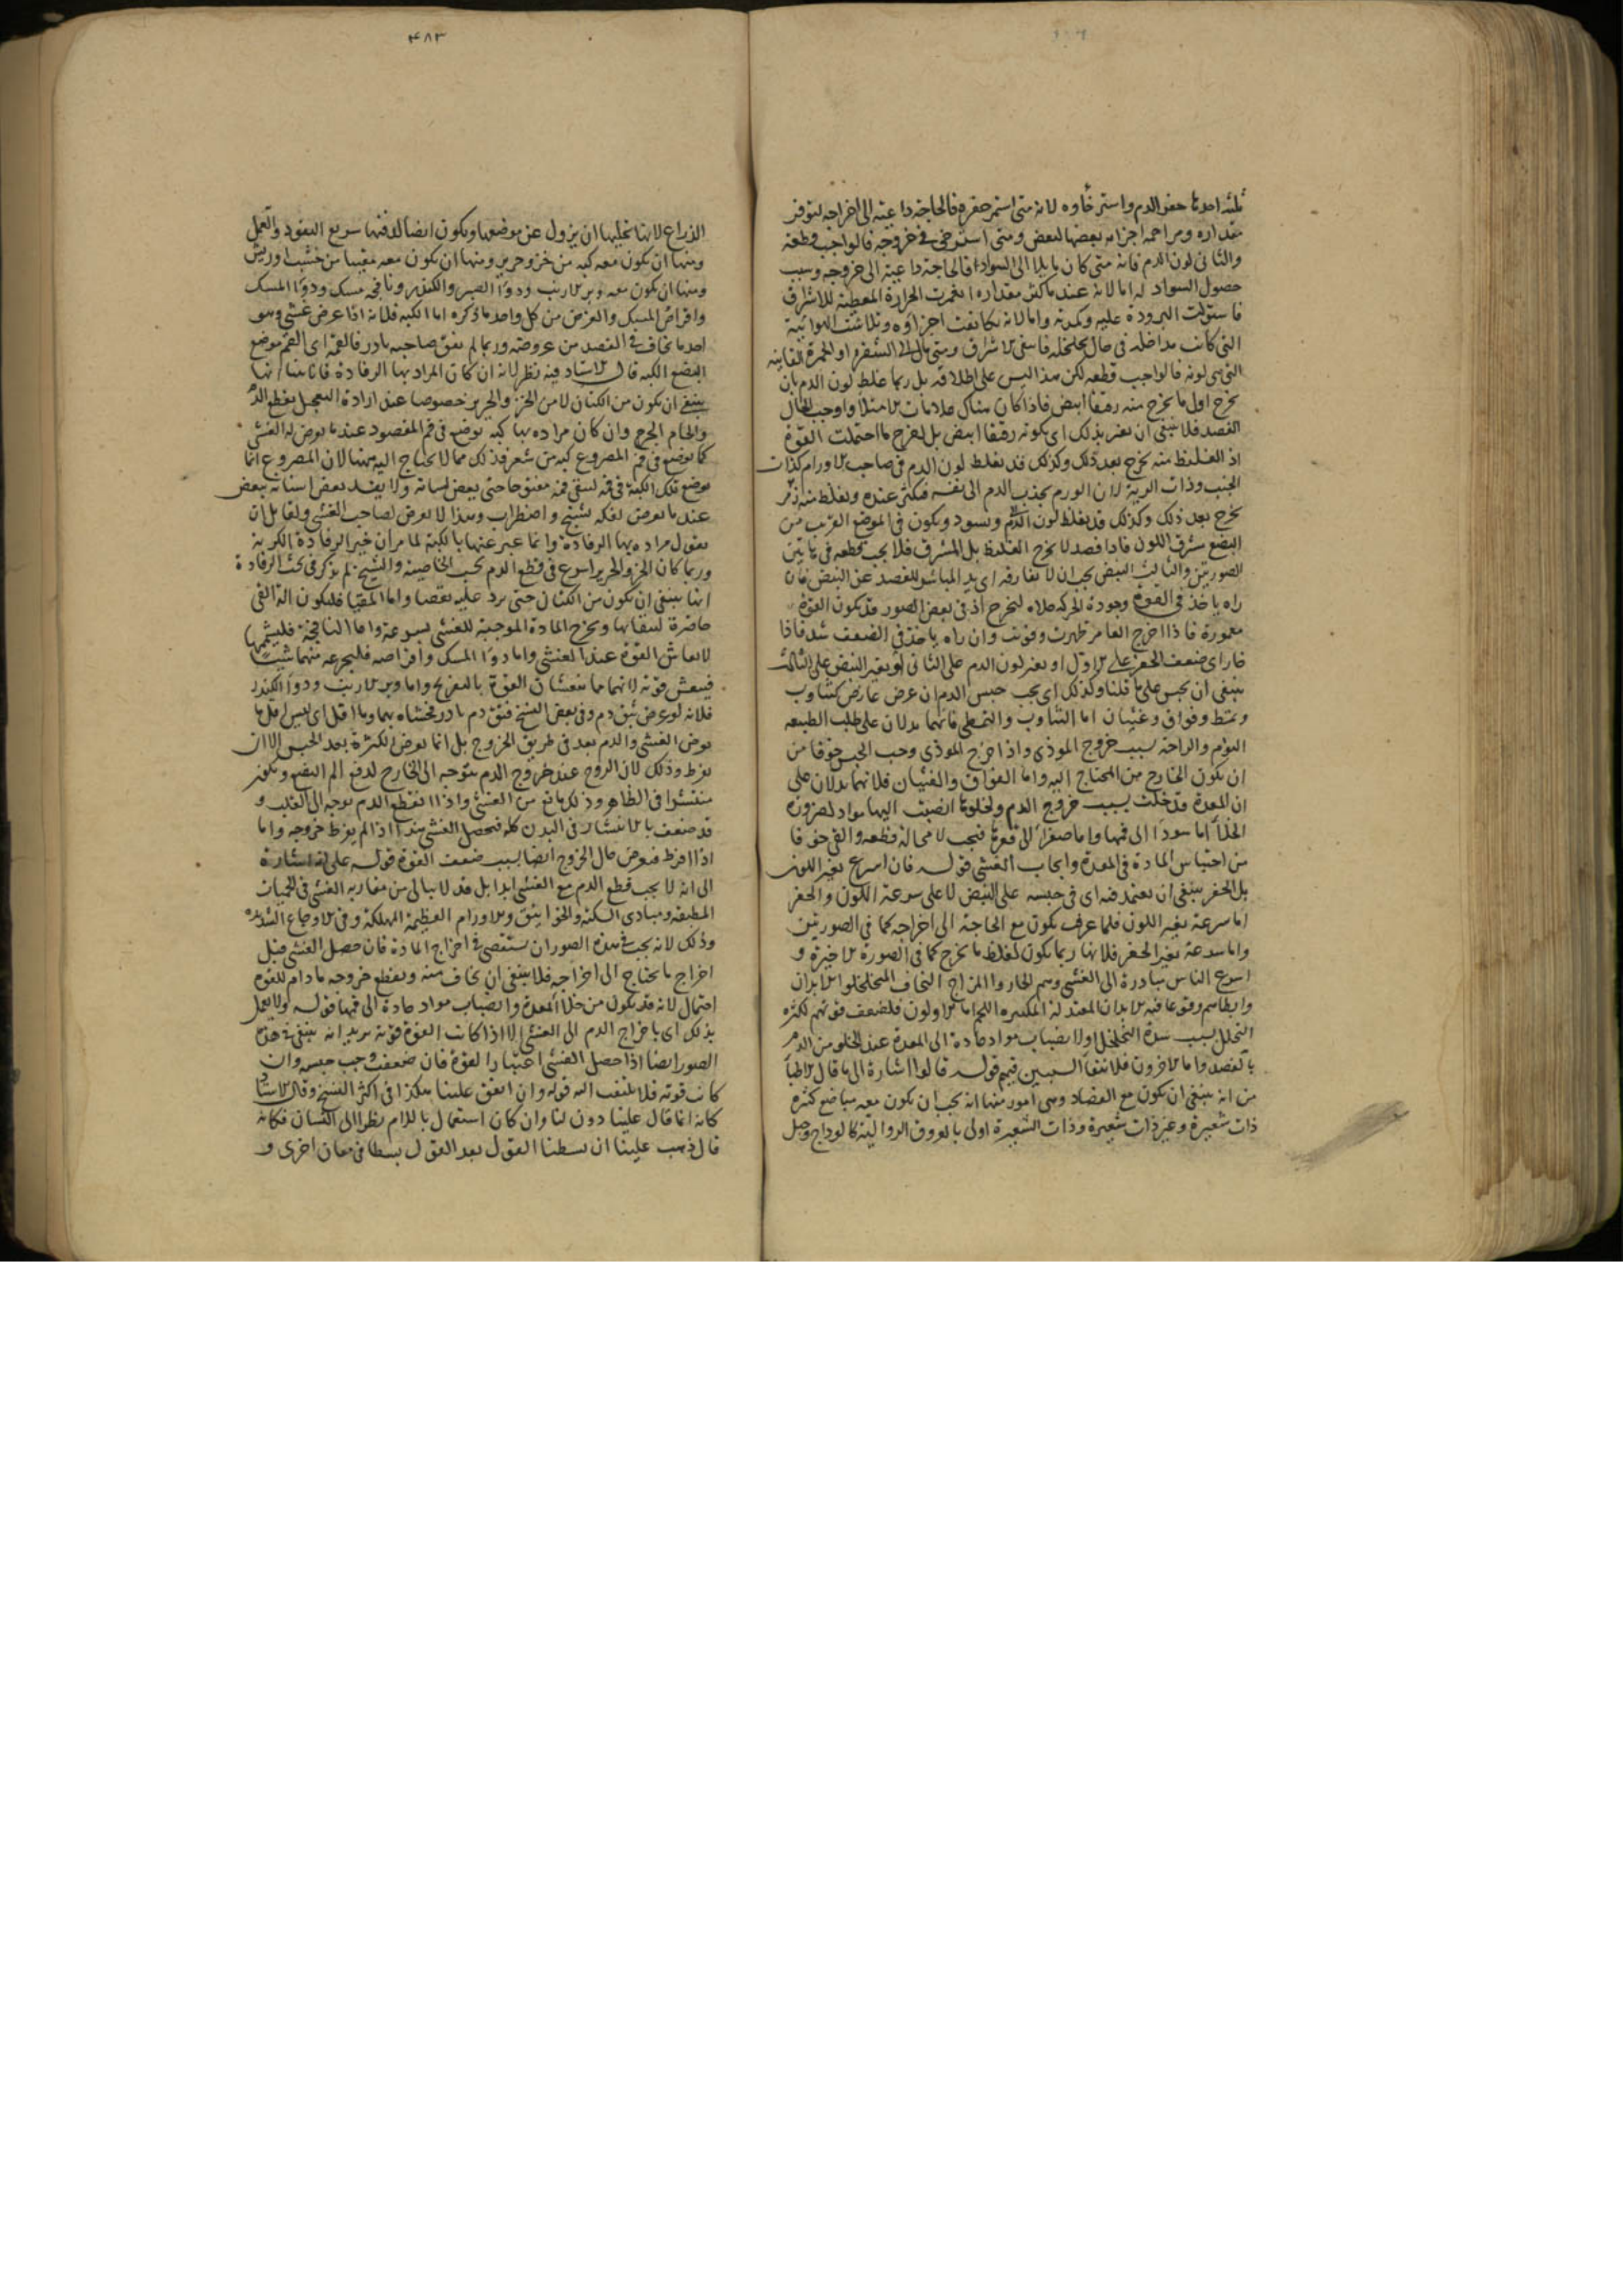 ثلثة احدها حفز الدم واسترخاوه لانه متى استمر حفزه فالحاجة داعية الى اخراجه لتوفر
مقداره ومزاحمة اجزائه بعضها لبعض ومتى استرخى في خروجه فالواجب قطعه
والثانى لون الدم فانه متى كان مايلا الى السواد فالحاجة داعية الى خروجه وسبب
حصول السواد له اما لانه عند ما كثر مقداره انغمرت الحرارة المعطية للاشراق
فاستولت البرودة عليه وكمدته واما لانه تكاثفت اجزاوه وتلاشت الهوائية
التى كانت مداخلة فى حال تخلخله فاسفى الاشراق ومتى مال الى الشقرة او الحمرة القانية
التى هى لونه فالواجب قطعه لكن هذا ليس على اطلاقه بل ربما غلظ لون الدم بان
يخرج اول ما يخرج منه رقيقا ابيض فاذا كان هناك علامات الامتلا واوجب الحال
الفصد فلا ينبغى ان يغتر بذلك اى بكونه رقيقا ابيض بل يخرج ما احتملت القوة
اذ الغليظ منه يخرج بعد ذلك وكذلك قد يغلط لون الدم فى صاحب الاورام كذات
الجنب وذات الرية لان الورم يجذب الدم الى نفسه فيكثر عنده ويغلظ منه ثم
يخرج بعد ذلك وكذلك قد يغلظ لون الدم ويسود ويكون فى الموضع القريب من
البضع مشرق اللون فاذا فصد لا يخرج الغليظ بل المشرق فلا يجب قطعه فى هاتين
الصورتين والثالث النبض يجب ان لا تفارقه اى يد المباشر للفصد عن النبض فان
راه ياخذ فى القوة وجودة الحركة خلاه ليخرج اذ فى بعض الصور قد يكون القوة
مغمورة فاذا اخرج الغامر ظهرت وقويت وان راه ياخذ فى الضعف شد فاذا
فاراى ضعف الحفز على الاول او تغير لون الدم على الثانى او تغير النبض على الثالث
ينبغى ان يحبس على ما قلنا وكذلك اى يجب حبس الدم ان عرض عارض كتثاوب
وتمط وفواق وغثيان اما التثاوب والتمطى فانهما يدلان على طلب الطبيعة
النوم والراحة بسبب خروج الموذى واذا خرج الموذى وجب الحبس خوفا من
ان يكون الخارج من المحتاج اليه واما الفواق والغثيان فلانهما يدلان على
ان المعدة قد خلت بسبب خروج الدم ولخلوها انصبت اليها مواد لضرورة
الخلأ اما سودا الى فمها واما صفرا الى قعرها فيجب لا محالة قطعه والقى خوفا
من احتباس المادة فى المعدة وايجاب الغشى قوله فان اسرع تغير اللون
بل الحفز ينبغى ان يعتمد فيه اى فى حبسه على النبض لا على سرعة اللون والحفز
اما سرعة تغير اللون فلما عرف يكون مع الحاجة الى اخراجه كما فى الصورتين
واما سرعة تغير الحفز فلانها ربما يكون لغلظ ما يخرج كما فى الصورة الاخيرة و
اسرع الناس مبادرة الى الغشى وهم الحاروا المزاج النحاف المتخلخلوا الابدان
وابطاهم وقوعا فيه الابدان المعتدلة المكتنزة اللحم اما الاولون فلضعف قوتهم لكثرة
التحلل بسبب شدة التخلخل اولا نصباب مواد حادة الى المعدة عند الخلو من الدم
بالفصد واما الاخرون فلانتفأ السببين فيهم قوله قالوا اشارة الى ما قال الاطبأ
من انه ينبغى ان يكون مع الفصاد وهى امور منها انه يجب ان يكون معه مباضع كثيرة
ذات شعيرة وغير ذات شعيرة وذات الشعيرة اولى بالعروق الزوالية كالوداج وحبل
۴۸۳
الذراع لانها تخليها ان يزول عن موضعها ويكون ايضا لدقتها سريع النفوذ والعمل
ومنها ان يكون معه كبة من خز وحرير ومنها ان يكون معه مقيئا من خشب او ريش
ومنها ان يكون معه وبر الارنب ودوا الصبر والكندر ونافجة مسك ودوا المسك
واقراص المسك والغرض من كل واحد ما ذكره اما الكبة فلانه اذا عرض غشى وهو
احد ما يخاف فى الفصد من عروضه وربما لم يفق صاحبه بادر فالقمه اى القم موضع
البضع الكبة قال الاستاد فيه نظر لانه ان كان المراد بها الرفادة فانا بينا انها
ينبغى ان يكون من الكتان لا من الخز والحرير خصوصا عند ارادة التعجيل بقطع الدم
والحام الجرح وان كان مراده بها كبة توضع فى فم المفصود عندما يعرض له الغشى
كما توضع فى فم المصروع كبة من شعر فذلك مما لا يحتاج اليه ههنا لان المصروع انما
توضع تلك الكبة فى فمه ليبقى فمه مفتوحا حتى يعض لسانه ولا يفسد بعض اسنانه ببعض
عند ما يعرض لفكه تشنج واضطراب وهذا لا يعرض لصاحب الغشى ولقايل ان
يقول مراده بها الرفادة وانما عبر عنها بالكبة لما مر ان خير الرفادة الكرية
وربما كان الخز والحرير اسرع فى قطع الدم بحسب الخاصية والشيخ لم يذكر فى بحث الرفادة
انها ينبغى ان يكون من الكتان حتى يرد عليه نقضا واما المقيأ فليكون الة القى
حاضرة ليتقيأ بها ويخرج المادة الموجبة للغشى بسرعة واما النافجة فليشمها
لانعاش القوة عند الغشى واما دوا المسك واقراصه فليجرعه منهما شيئا
فينعش قوته لانهما مما ينعشان القوة بالتفريح واما وبر الارنب ودوأ الكندر
فلانه لو عرض بثق دم وفى بعض النسخ فتق دم بادر فحشاه بهما وما اقل اى ليس اقل ما
يعرض الغشى والدم بعد فى طريق الخروج بل انما يعرض اكثره بعد الحبس الا ان
يفرط وذلك لان الروح عند خروج الدم يتوجه الى الخارج لدفع الم البضع ويكون
منتشرا فى الظاهر وذلك مانع من الغشى واذا انقطع الدم توجه الى القلب و
قد ضعف بالانتشار فى البدن كله فيحصل الغشى هذا اذا لم يفرط خروجه واما
اذا افرط فيعرض حال الخروج ايضا بسبب ضعف القوة قوله على انه اشارة
الى انه لا يجب قطع الدم مع الغشى ابدا بل قد لا يبالى من مقاربة الغشى فى الحميات
المطبقة ومبادى السكتة والخوانيق والاورام العظيمة المهلكة وفى الاوجاع الشديدة
وذلك لانه يجب فى هذه الصور ان يستقصى فى اخراج المادة فان حصل الغشى قبل
اخراج ما يحتاج الى اخراجه فلا ينبغى ان يخاف منه ويقطع خروجه ما دام للقوة
احتمال لانه قد يكون من خلأ المعدة وانصباب مواد حادة الى فمها قوله ولا يعمل
بذلك اى باخراج الدم الى الغشى الا اذا كانت القوة قوية يريد انه ينبغى فى هذه
الصور ايضا اذا حصل الغشى اعتبار القوة فان ضعفت وجب حبسه وان
كانت قوية فلا يلتفت اليه قوله وان اتفق علينا هكذا فى اكثر النسخ وقال الاستاد
كانه انما قال علينا دون لنا وان كان استعمال باللام نظرا الى النسيان فكانه
قال ذهب علينا ان بسطنا القول بعد القول بسطا فى معان اخرى و